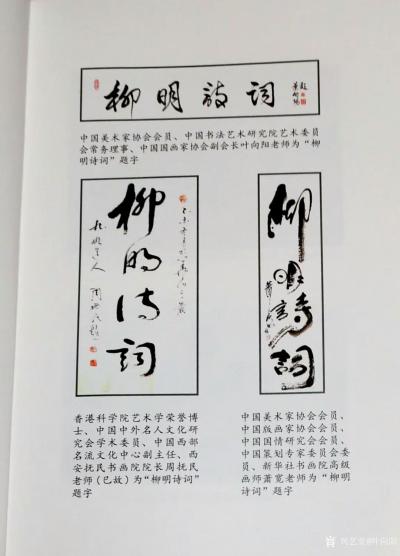 柳明诗词
叶向阳题
中国美术家协会会员、中国书法艺术研究院艺术委员
会常务理事、中国国画家协会副会长叶向阳老师为“柳
明诗词”题字
柳明诗词
柳明诗词
香港科学院艺术学荣誉博
士、中国中外名人文化研
究会学术委员、中国西部
名流文化中心副主任、西
安抚民书画院院长周抚民
老师(已故)为“柳明诗词”
题字
中国美术家协会会员、
中国版画家协会会员、
中国国情研究会会员、
中国策划专家委员会委
员、新华社书画院高级
画师萧宽老师为“柳明
诗词”题字